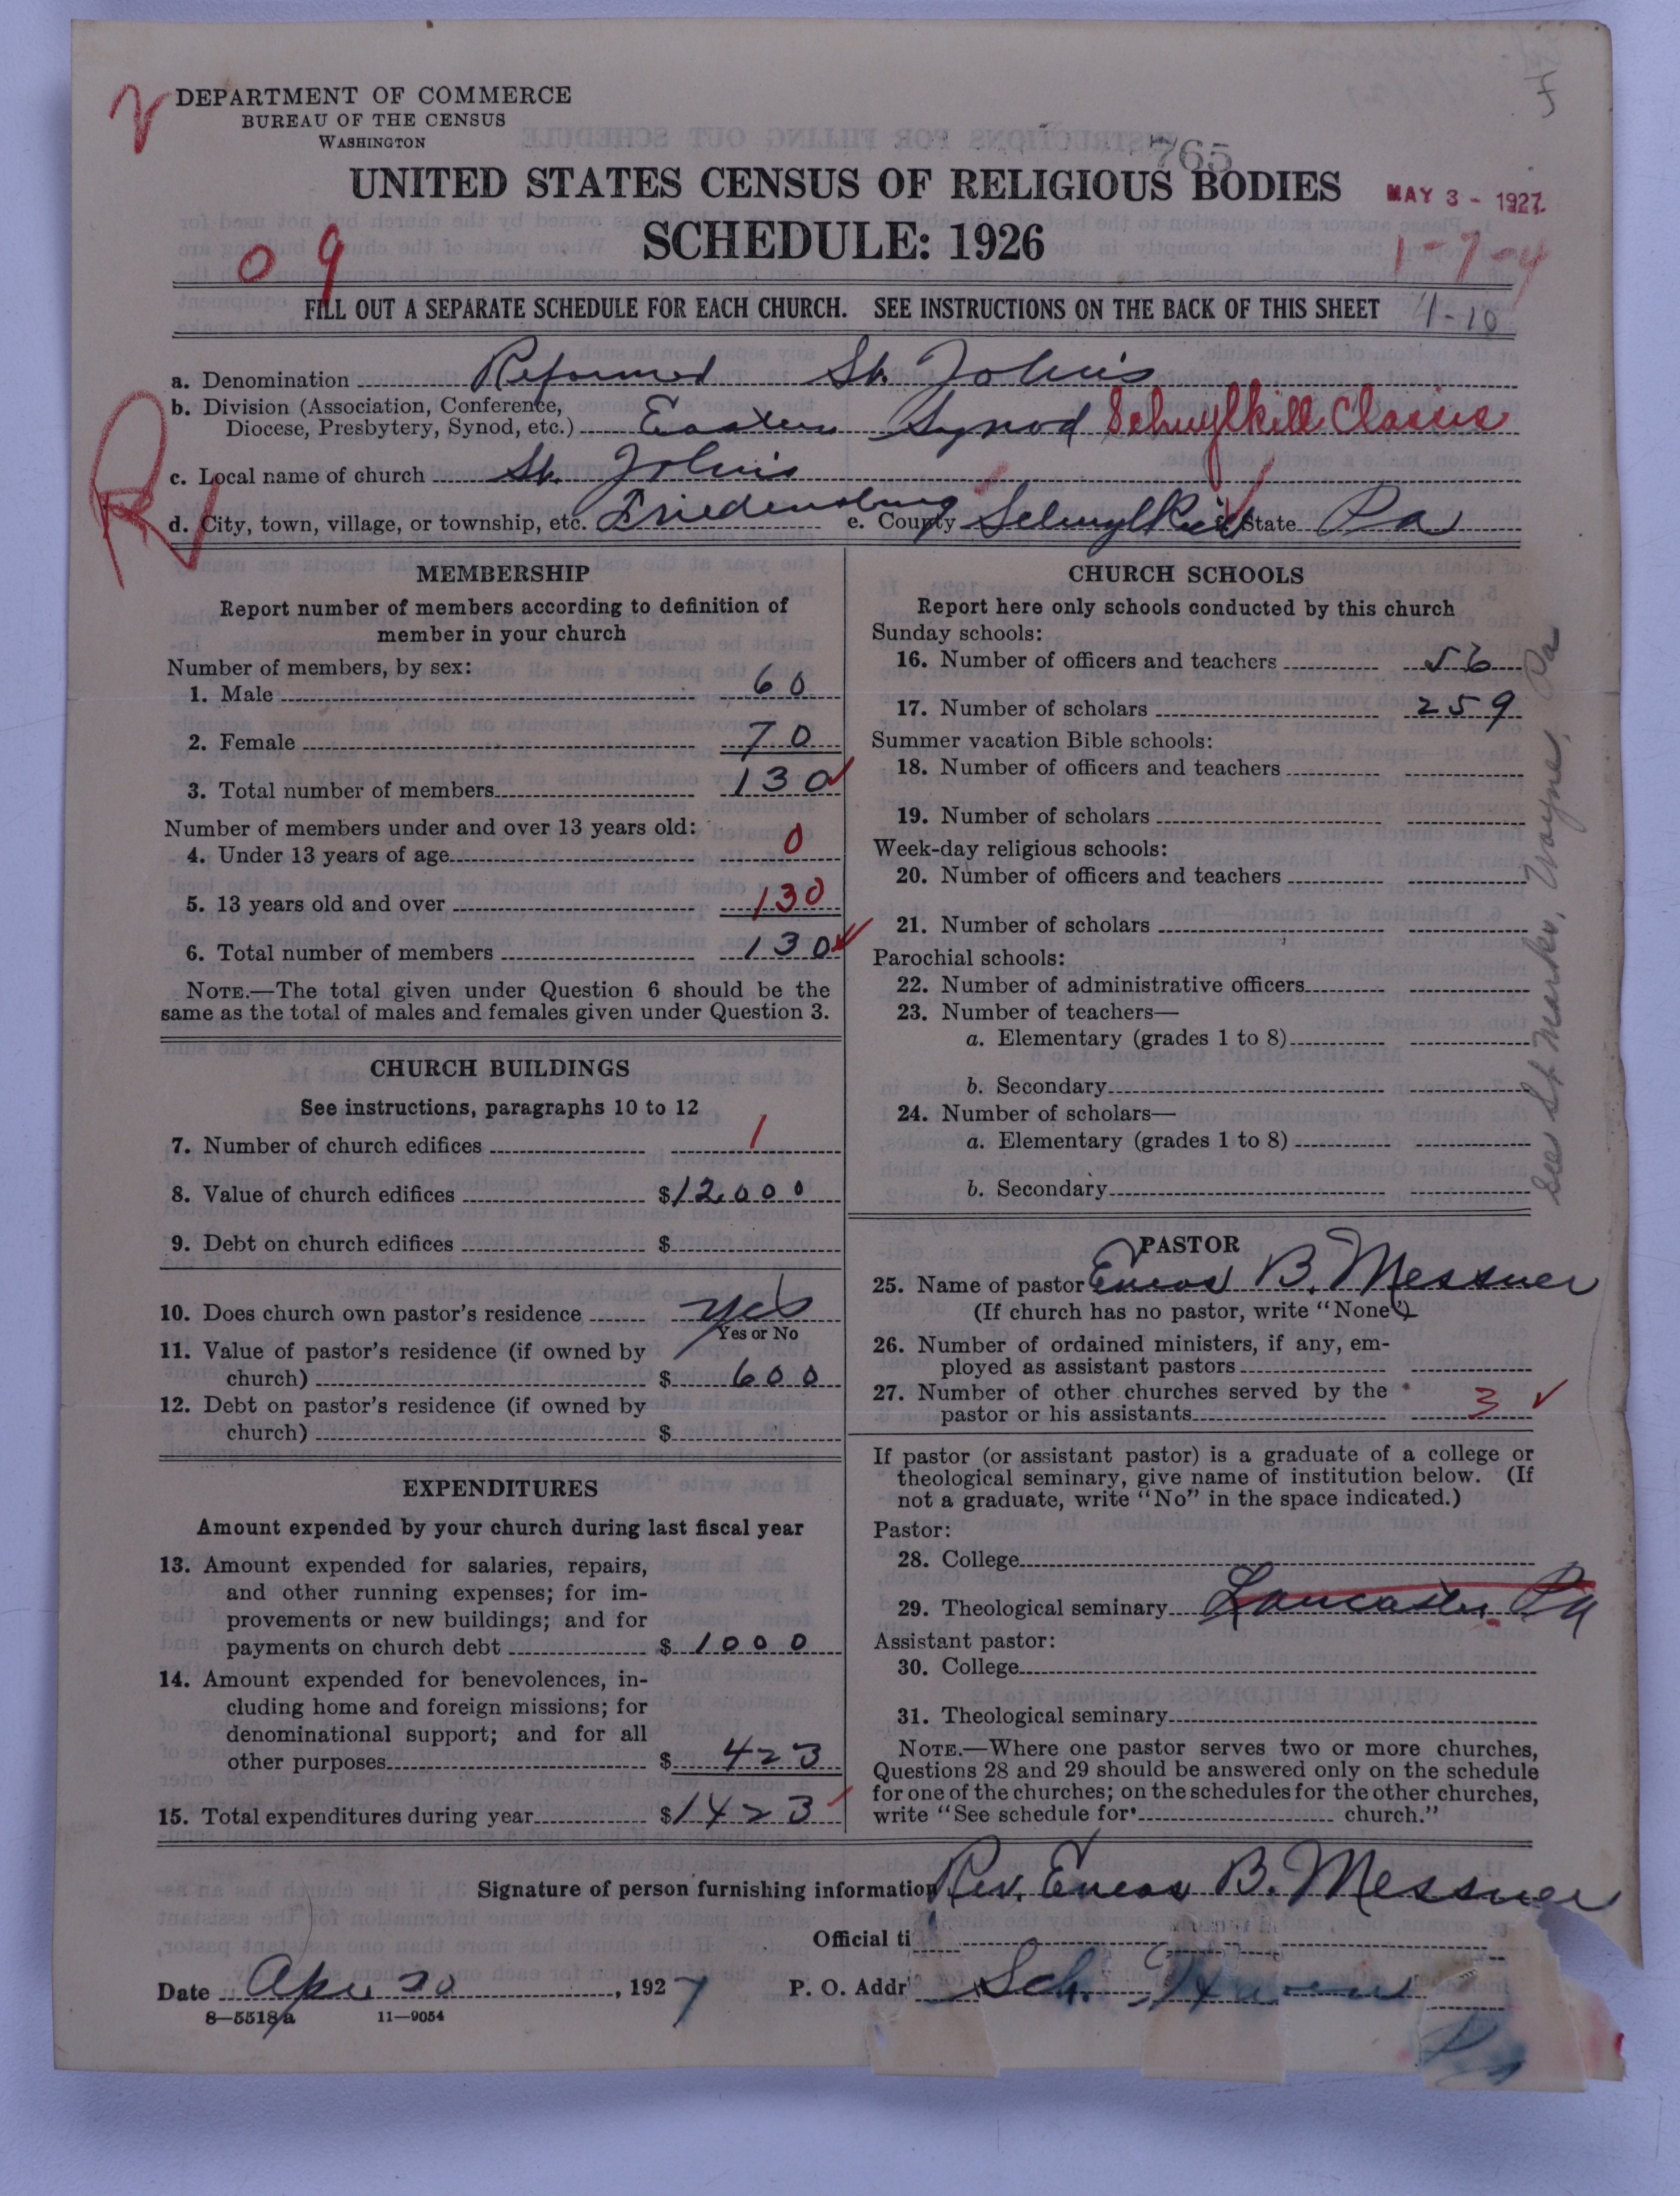 DEPARTMENT OF COMMERCE
BUREAU OF THE CENSUS
WASHINGTON
765
UNITED STATES CENSUS OF RELIGIOUS BODIES
MAY 3 - 1927
SCHEDULE: 1926
0 9
1-7-4
FILL OUT A SEPARATE SCHEDULE FOR EACH CHURCH. SEE INSTRUCTIONS ON THE BACK OF THIS SHEET
4-10
a. Denomination Reformed St. John's
b. Division (Association, Conference, Diocese, Presbytery, Synod, etc.) Eastern Synod Schuylkill Classis
c. Local name of church St. John's
d. City, town, village, or township, etc. Friedensburg e. County Schuylkill State Pa
MEMBERSHIP
Report number of members according to definition of
member in your church
Number of members, by sex:
1. Male 60
2. Female 70
3. Total number of members 130
Number of members under and over 13 years old:
4. Under 13 years of age 0
5. 13 years old and over 130
6. Total number of members 130
NOTE.—The total given under Question 6 should be the
same as the total of males and females given under Question 3.
CHURCH BUILDINGS
See instructions, paragraphs 10 to 12
7. Number of church edifices 1
8. Value of church edifices $12000
9. Debt on church edifices $
10. Does church own pastor's residence yes
Yes or No
11. Value of pastor's residence (if owned by
church) $ 600
12. Debt on pastor's residence (if owned by
church) $
EXPENDITURES
Amount expended by your church during last fiscal year
13. Amount expended for salaries, repairs,
and other running expenses; for im-
provements or new buildings; and for
payments on church debt $ 1000
14. Amount expended for benevolences, in-
cluding home and foreign missions; for
denominational support; and for all
other purposes $ 423
15. Total expenditures during year $1423
CHURCH SCHOOLS
Report here only schools conducted by this church
Sunday schools:
16. Number of officers and teachers 56
17. Number of scholars 259
Summer vacation Bible schools:
18. Number of officers and teachers
19. Number of scholars
Week-day religious schools:
20. Number of officers and teachers
21. Number of scholars
Parochial schools:
22. Number of administrative officers
23. Number of teachers—
a. Elementary (grades 1 to 8)
b. Secondary
24. Number of scholars—
a. Elementary (grades 1 to 8)
b. Secondary
See St Marks, Wayne, Pa
PASTOR
25. Name of pastor Eneas B. Messner
(If church has no pastor, write "None")
26. Number of ordained ministers, if any, em-
ployed as assistant pastors
27. Number of other churches served by the
pastor or his assistants 3
If pastor (or assistant pastor) is a graduate of a college or
theological seminary, give name of institution below. (If
not a graduate, write "No" in the space indicated.)
Pastor:
28. College
29. Theological seminary Lancaster Pa
Assistant pastor:
30. College
31. Theological seminary
NOTE.—Where one pastor serves two or more churches,
Questions 28 and 29 should be answered only on the schedule
for one of the churches; on the schedules for the other churches,
write "See schedule for church."
Signature of person furnishing information Rev. Eneas B. Messner
Official ti
Date Apr 30, 1927 P. O. Addr Sch. Haven
Pa
8—5518a 11—9054